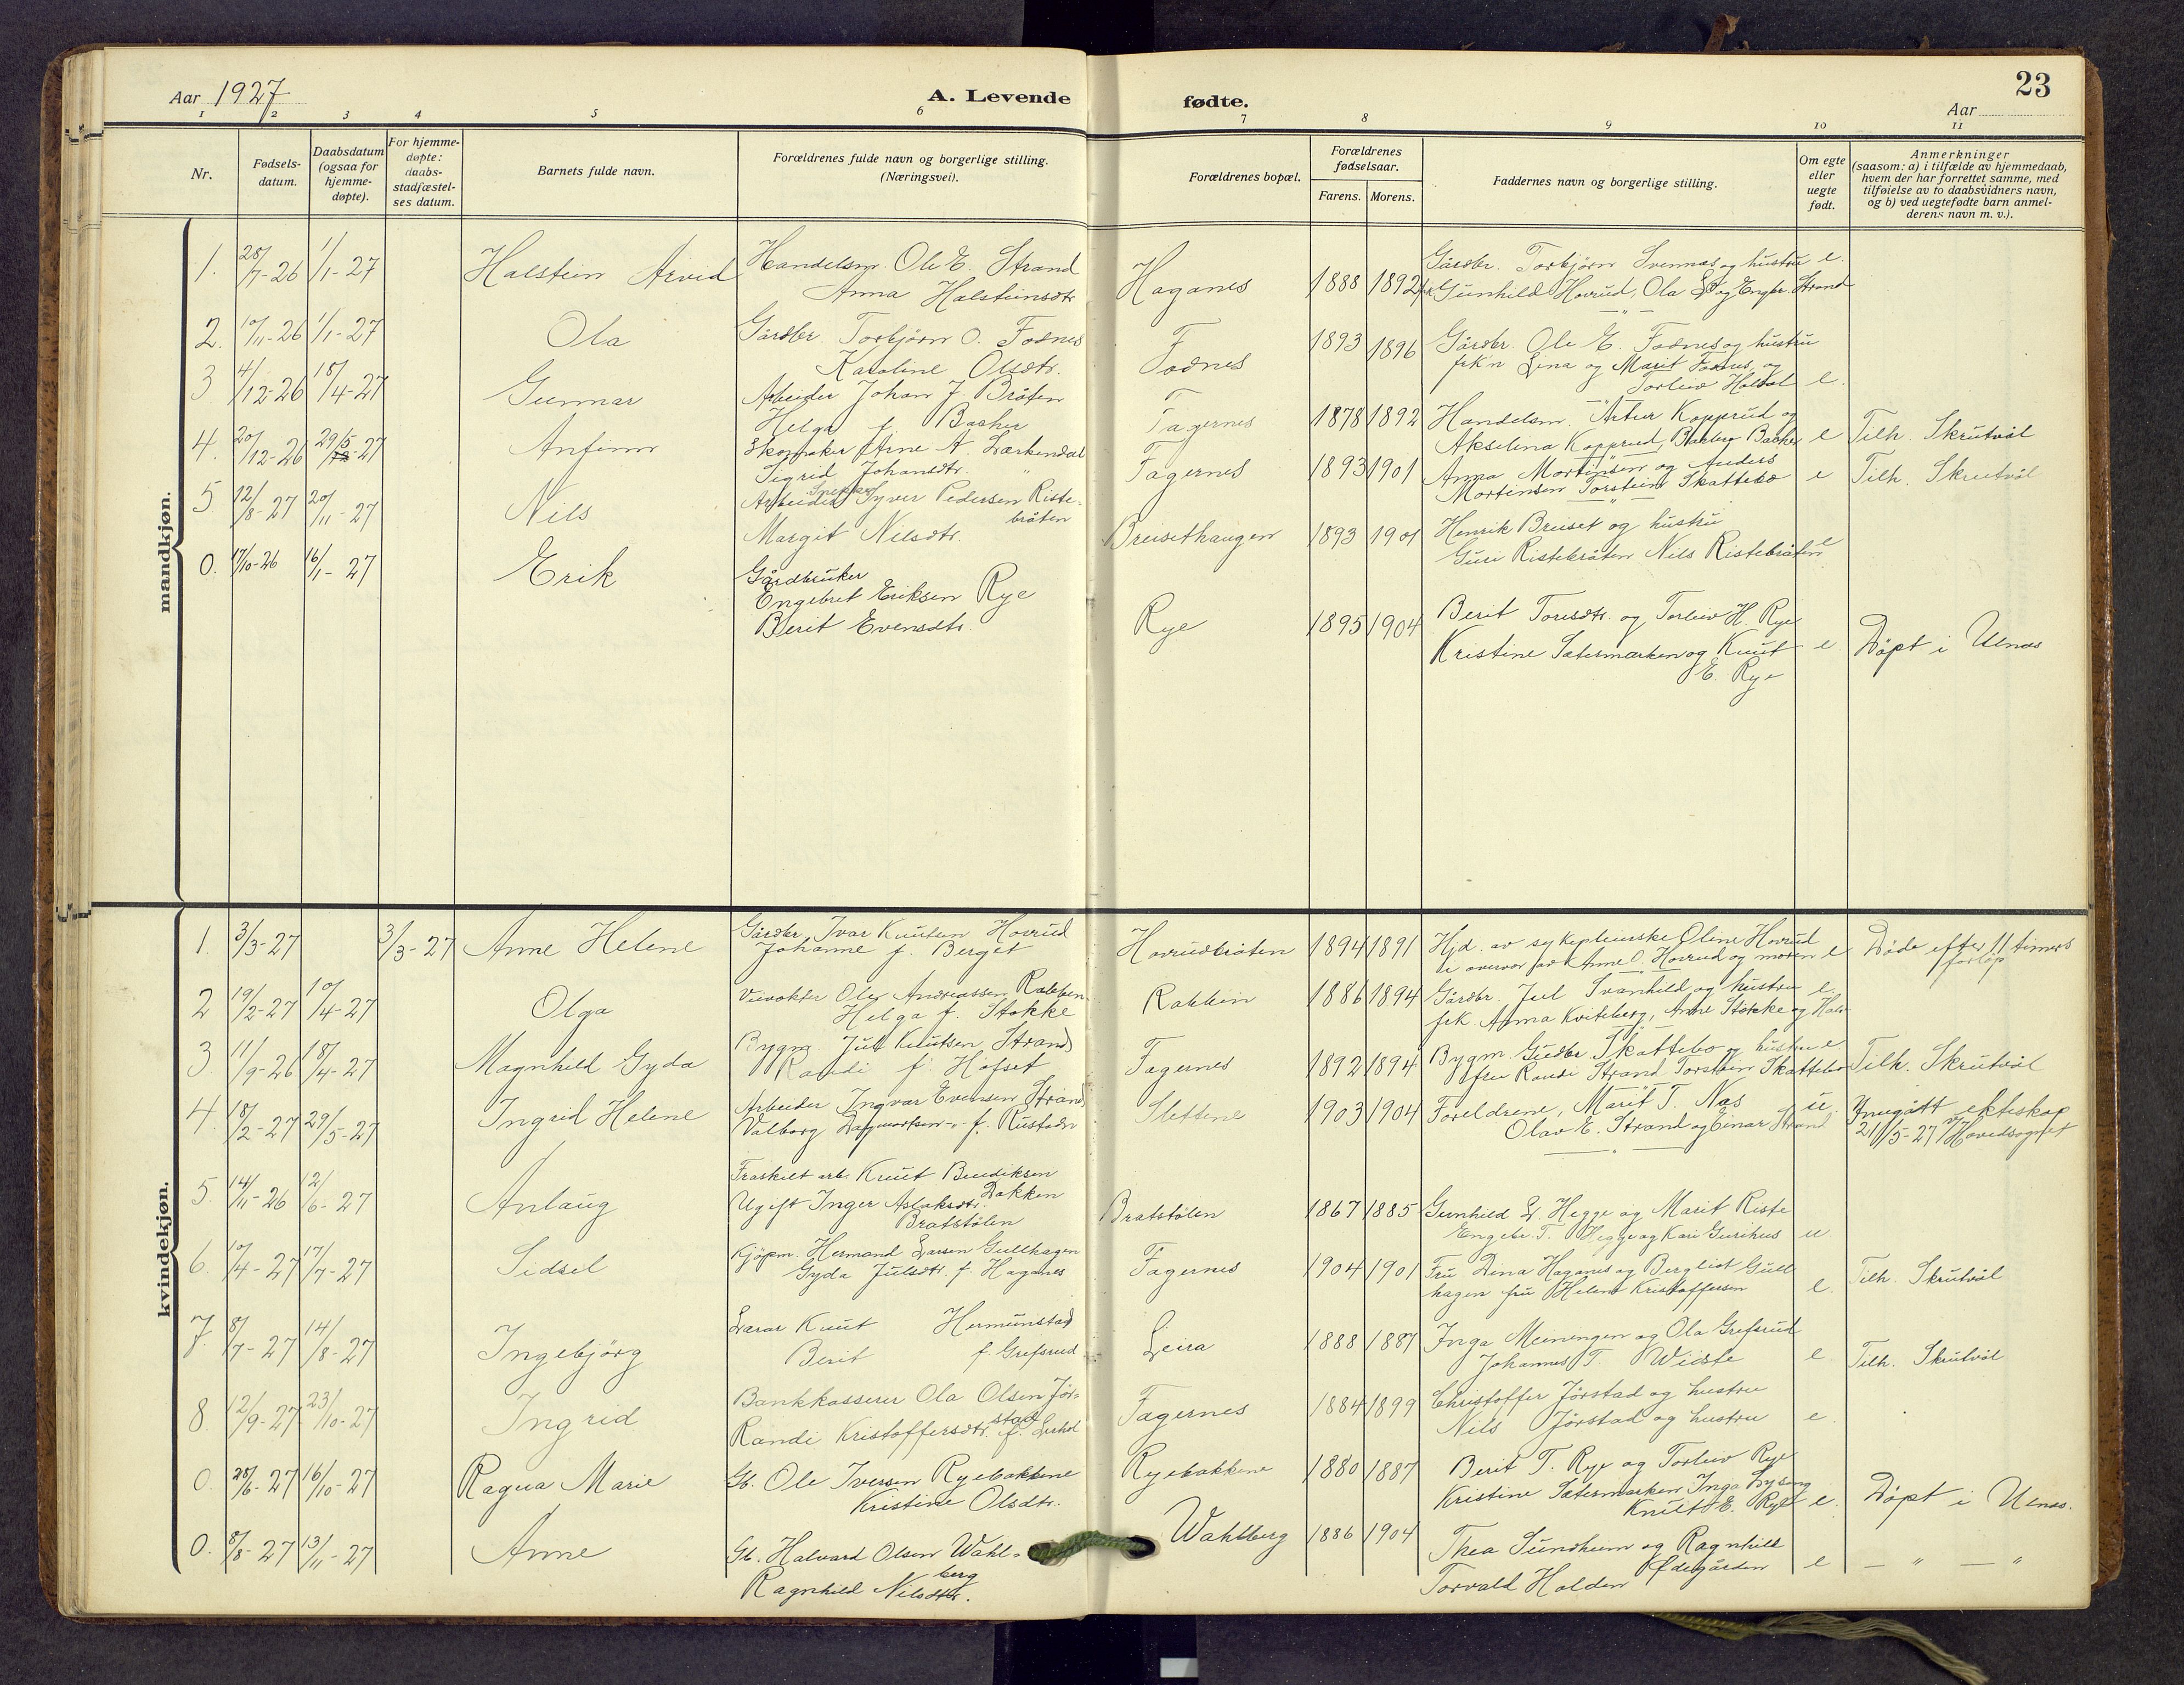 Aar 1927
A. Levende
fødte.
23
Aar
1 2 3 4 5 6 7 8 9 10 11
Nr.
Fødsels-
datum.
Daabsdatum
(ogsaa for
hjemme-
døpte).
For hjemme-
døpte:
daabs-
stadfæstel-
ses datum.
Barnets fulde navn.
Forældrenes fulde navn og borgerlige stilling.
(Næringsvei).
Forældrenes bopæl.
Forældrenes
fødselsaar.
Farens. Morens.
Faddernes navn og borgerlige stilling.
Om egte
eller
uegte
født.
Anmerkninger
(saasom: a) i tilfælde av hjemmedaab,
hvem der har forrettet samme, med
tilføielse av to daabsvidners navn,
og b) ved uegtefødte barn anmel-
derens navn m. v.).
mandkjøn.
1. 28/7-26 1/1-27 Halstein Arvid
Handelsm. Ole E. Strand
Anna Halsteinsdtr.
Haganes 1888 1892
Gårdbr. Torbjørn Svennes og hustru e.
Gunhild Hovrud, Ola og Engbr. Strand
2. 10/11-26 1/1-27 Ola
Gårdbr. Torbjørn O. Fodnes
Karoline Olsdtr.
Fodnes 1893 1896
Gårdbr. Ole E. Fodnes og hustru
frk'n Lina og Marit Fodnes, og
Torleiv e.
3 4/12-26 18/4-27 Gunnar
Arbeider Johan J. Bråten
Helga f. Bacher
Fagernes 1878 1892
Handelsm. Artur Kopprud og
Akselina Kopprud, Barbro Bacher e
Tilh. Skrutvål
4. 20/12-26 29/5-27 Anfinn
Skomaker Arne A. Lærkendal
Sigrid Johansdtr. "
Fagernes 1893 1901
Anna Mortinsen og Anders
Mortinsen Torstein Skattebo e
Tilh. Skrutvål
5 12/8-27 20/11-27 Nils
Snekker
Arbeider Syver Pedersen Riste-
bråten
Margit Nilsdtr.
Breisethaugen 1893 1901
Henrik Breiset og hustru
Guri Ristebråten Nils Ristebråten e
0. 17/10-26 16/1-27 Erik
Gårdbruker
Engebret Eriksen Rye
Berit Evensdtr.
Rye 1895 1904
Berit Torisdtr. og Torleiv H. Rye
Kristine Sætermarken og Knut e
E. Rye
Døpt i Ulnes
kvindekjøn.
1. 3/3-27 3/3-27 Anne Helene
Gårdbr. Ivar Knutsen Hovrud
Johanne f. Berget
Hovrudbråten 1894 1891
Hjd. av sykepleierske Oline Hovrud
Anne O. Hovrud og moren e
Døde efter 11 timers
forløp
2 19/2-27 10/4-27 Olga
Veivokter Ole Andreassen Rabben
Helga f. Stokke
Rabbin 1886 1894
Gårdbr. Jul Svanhild og hustru e.
frk. Anna Kviteberg, Anne Stokke og
3. 11/9-26 18/4-27 Magnhild Gyda
Bygm. Jul Knutsen Strand
Randi f. Hofset
Fagernes 1892 1894
Bygm. Gudbr. Skattebo og hustru e
fru Randi Strand Torstein Skattebo
Tilh. Skrutvål
4. 18/2-27 29/5-27 Ingrid Helene
Arbeider Ingvar Evensen Strand
Valborg f. Rustadn
Slettene 1903 1904
Foreldrene, Marit T. Næs u.
Olav E. Strand og Einar Strand
Inngått ekteskap
21/5-27 i Hovedsognet
5. 14/11-26 12/6-27 Anlaug
Fraskilt arb. Knut Bendiksen
Bakken
Ugift Inger Aslaksdtr.
Bratstølen
Bratstølen 1867 1885
Gunhild L. Hegge og Marit Riste
Engebr. T. Hegge og Kari Gurihus u
6. 10/4-27 17/7-27 Sidsel
Kjøpm. Hermand Larsen Gullhagen
Gyda Julsdtr. f. Haganes
Fagernes 1904 1901
Fru Dina Haganes og Bergliot Gull
hagen fru Helene Kristoffersen e.
Tilh. Skrutvål
7. 8/7-27 14/8-27 Ingebjörg
Lærar Knut Hermunstad
Berit f. Grefsrud
Leira 1888 1887
Inga Meinengen og Ola Grefsrud
Johannes T. Widste e
Tilh. Skrutvål
8 12/9-27 23/10-27 Ingrid
Bankkasserer Ola Olsen Jör-
stad
Randi Kristoffersdtr. f. Lerhol
Fagernes 1884 1899
Christoffer Jörstad og hustru
Nils Jörstad og hustru e.
0. 28/6-27 16/10-27 Ragna Marie
Gb. Ole Iversen Ryebakkene
Kristine Olsdtr.
Ryebakkene 1880 1887
Berit T. Rye og Torleiv Rye
Kristine Sætermarken Inga
Knut E. Rye e.
Døpt i Ulnes.
0. 8/8-27 13/11-27 Anne
Gb. Halvard Olsen Wahl-
berg
Ragnhild Nilsdtr.
Wahlberg 1886 1904
Thea Sundheim og Ragnhild
Ødegården
Torvald Holden e
— " — "